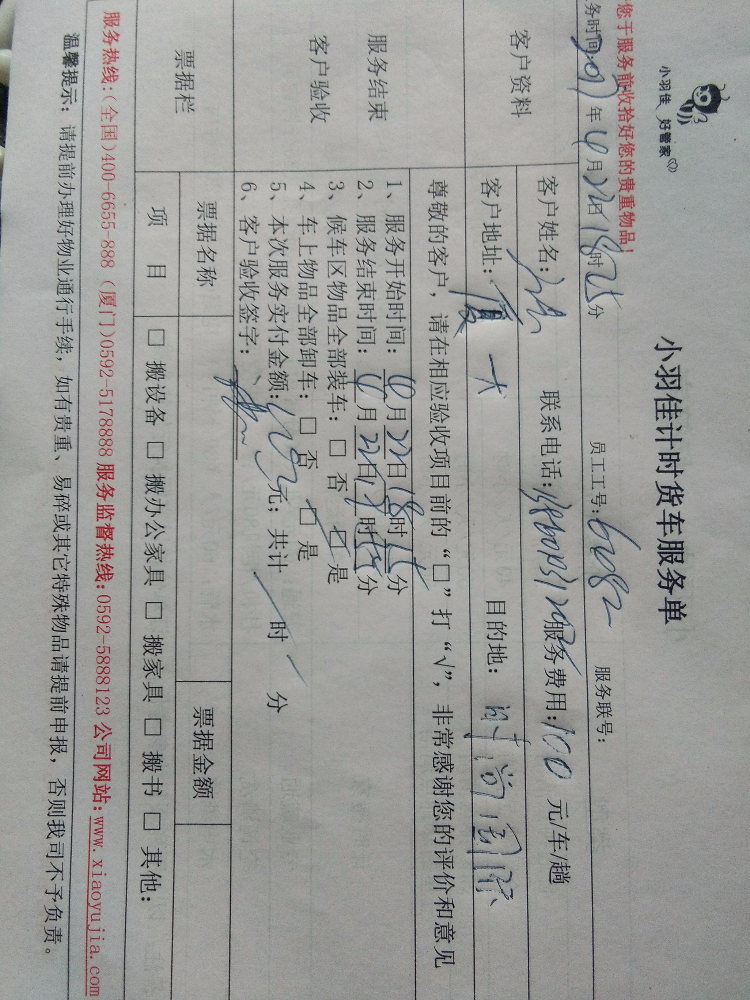 小羽佳 好管家
小羽佳计时货车服务单
您于服务前收拾好您的贵重物品！
员工工号：6082 服务联号：
务时间：2017年4月22日18时25分
客户资料
客户姓名： 联系电话： 服务费用：100 元/车/趟
客户地址：厦大 目的地：时尚国际
服务结束
客户验收
尊敬的客户，请在相应验收项目前的“□”打“√”，非常感谢您的评价和意见
1、服务开始时间：4月22日18时 分
2、服务结束时间：4月22日 时 分
3、候车区物品全部装车：□ 否 □ 是
4、车上物品全部卸车：□ 否 □ 是
5、本次服务实付金额： 元；共计 时 分
6、客户验收签字：
票据栏
票据名称 票据金额
项 目 □ 搬设备 □ 搬办公家具 □ 搬家具 □ 搬书 □ 其他：
服务热线：(全国)400-6655-888 (厦门)0592-5178888 服务监督热线：0592-5888123 公司网站：www.xiaoyujia.com
温馨提示：请提前办理好物业通行手续，如有贵重、易碎或其它特殊物品请提前申报，否则我司不予负责。